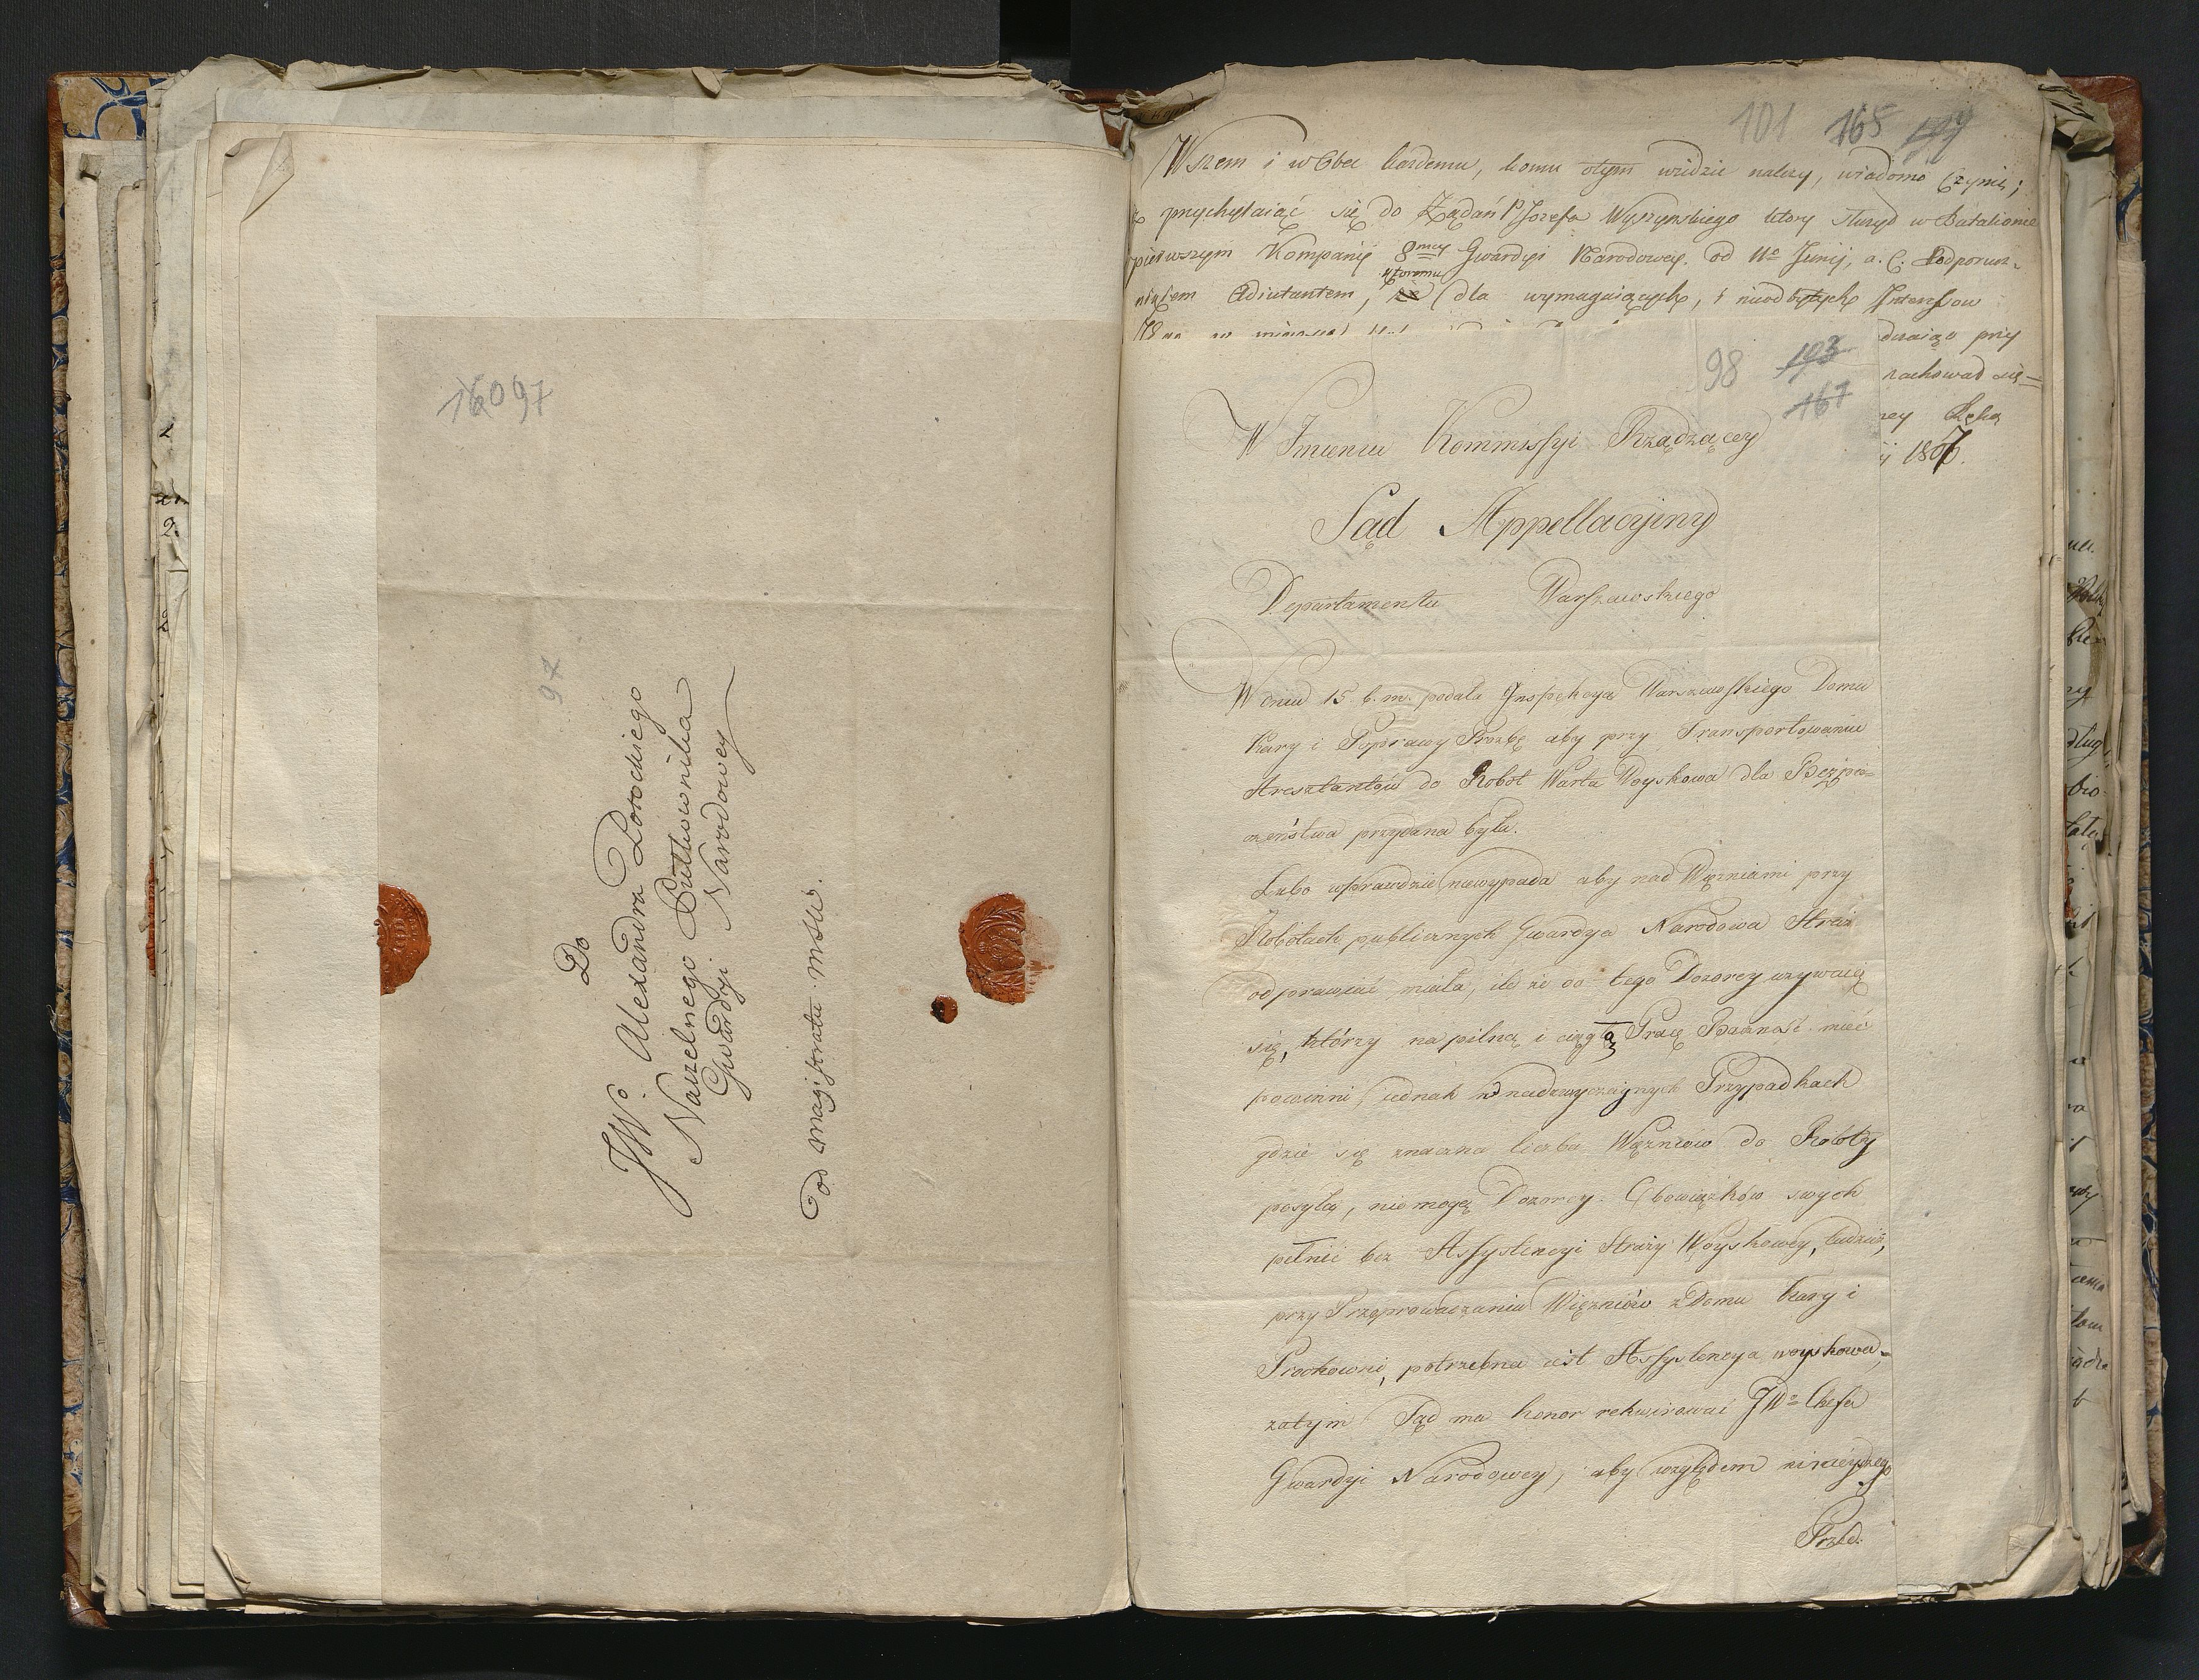 16097
97
Do
JWo. Alexandra Potockiego
Naczelnego Pułkownika
Gwardyi Narodowey
od Magistratu MSW.
101 165
Wszem i w Obec każdemu, komu otym widzić należy, wiadomo Czynię;
że przychylaiąc się do Żądań P Jozefa Wyszynskiego ktory służył w Batalionie
pierwszym Kompanij 8mey Gwardyi Narodowey. od 11o Junij, a. c. Podporucz-
nikiem Adiutantem, któremu dla wymagaiących, i nieodbytych Interessow
dzaiąc przy
zachował się=
ney Ręką
ij 1807.
98 193
167
W Imieniu Kommissyi Rządzącey
Sąd Appellacyiny
Departamentu Warszawskiego
W dniu 15 b. m. podała Inspekcya Warszawskiego Domu
Kary i Poprawy Prozbę aby przy Transportowaniu
Aresztantów do Robot Warta Woyskowa dla Bezpie=
czeństwa przydana była.
Lubo wprawdzie niewypada aby nad Więzniami przy
Robotach publicznych Gwardya Narodowa Straż
odprawiać miała, ile że do tego Dozorcy używaią
się, którzy na pilną i ciągłą Pracę Baczność mieć
powinni, iednak w nadzwyczaynych Przypadkach
gdzie się znaczna liczba Więzniów do Roboty
posyła, nie mogą Dozorcy Obowiązków swych
pełnić bez Assystencyi Straży Woyskowey, tudzież,
przy Przeprowadzaniu Więzniów z Domu Kary i
Prochowni, potrzebna iest Assystencya woyskowa,
zatym Sąd ma honor rekwirować JWo Chefa
Gwardyi Narodowey, aby względem ninieyszego
Przed.